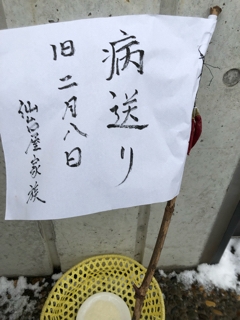 病送り
旧二月八日
仙台屋家族